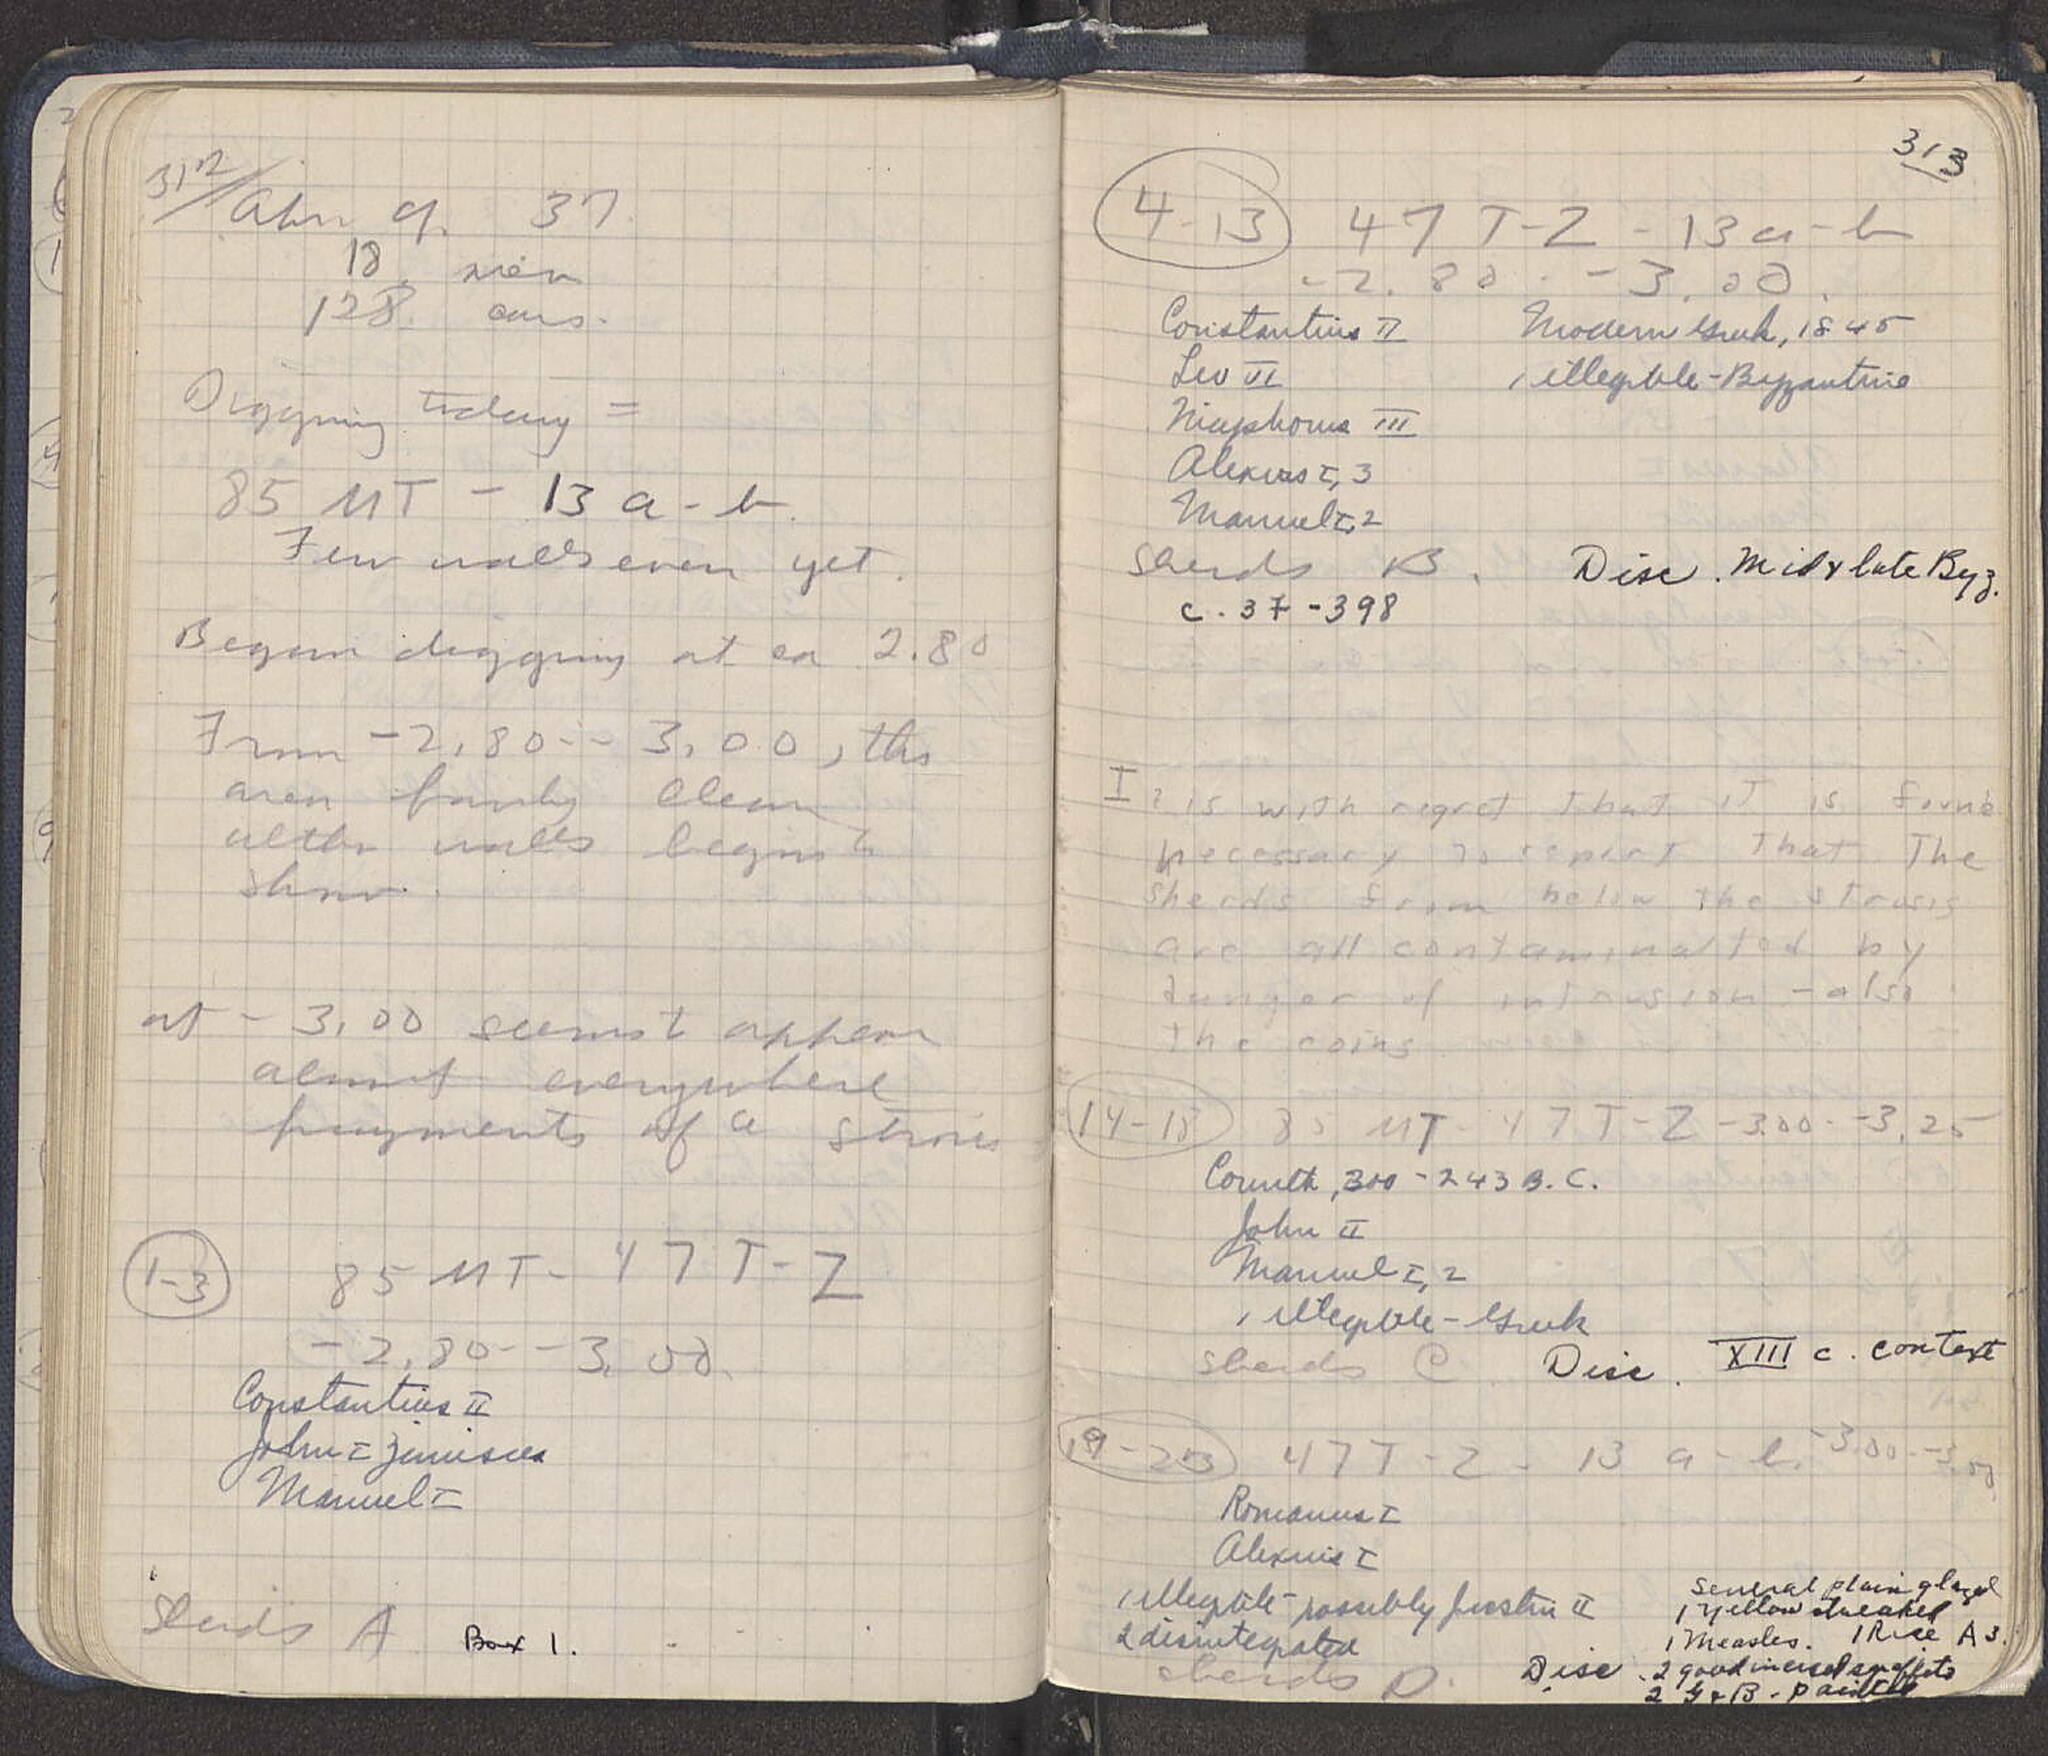 312
Apr. 9. 37
18 men
128 cars.
Digging today =
85 MT - 13 a-b.
Few walls even yet.
Began digging at ca 2.80
From -2.80 - -3.00, this
area fairly clean
altho walls begin to
show.
at -3.00 seems to appear
almost everywhere
fragments of a strosis
1-3 85 MT - 47 T-Z
-2.80 - -3.00.
Constantius II
John I Zimisces
Manuel I
Sherds A Box 1.
313
4-13 47 T-Z - 13 a-b
-2.80 - -3.00.
Constantius II Modern Greek, 1845
Leo VI 1 illegible - Byzantine
Nicephorus III
Alexius I, 3
Manuel I, 2
Sherds B. Disc. Mid & late Byz.
c. 37 - 398
It is with regret that it is found
necessary to report that the
sherds from below the strosis
are all contaminated by
danger of intrusion - also
the coins
14-18 85 MT - 47 T-Z -3.00 - -3.25
Corinth, 300 - 243 B.C.
John II
Manuel I, 2
1 illegible - Greek
Sherds C Disc. XIII c. context
19-23 47 T-Z - 13 a-b. -3.00 - -3.
Romanus I
Alexius I
1 illegible - possibly Justin II
2 disintegrated
sherds D. Disc.
Several plain glazed
1 Yellow streaked
1 Measles. 1 Rice A 3.
2 good incised sgraffito
2 G & B - painted